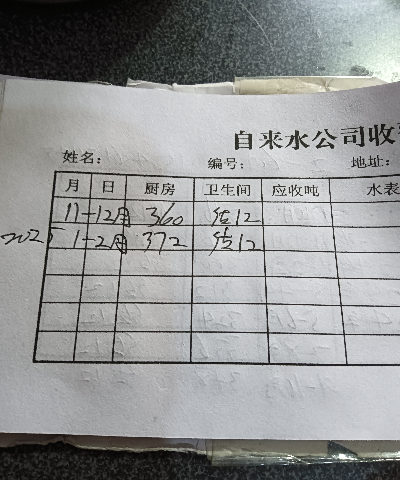 自来水公司收
姓名: 编号: 地址:
月 日 厨房 卫生间 应收吨 水表
11-12月 360 结12
2025 1-2月 372 结12